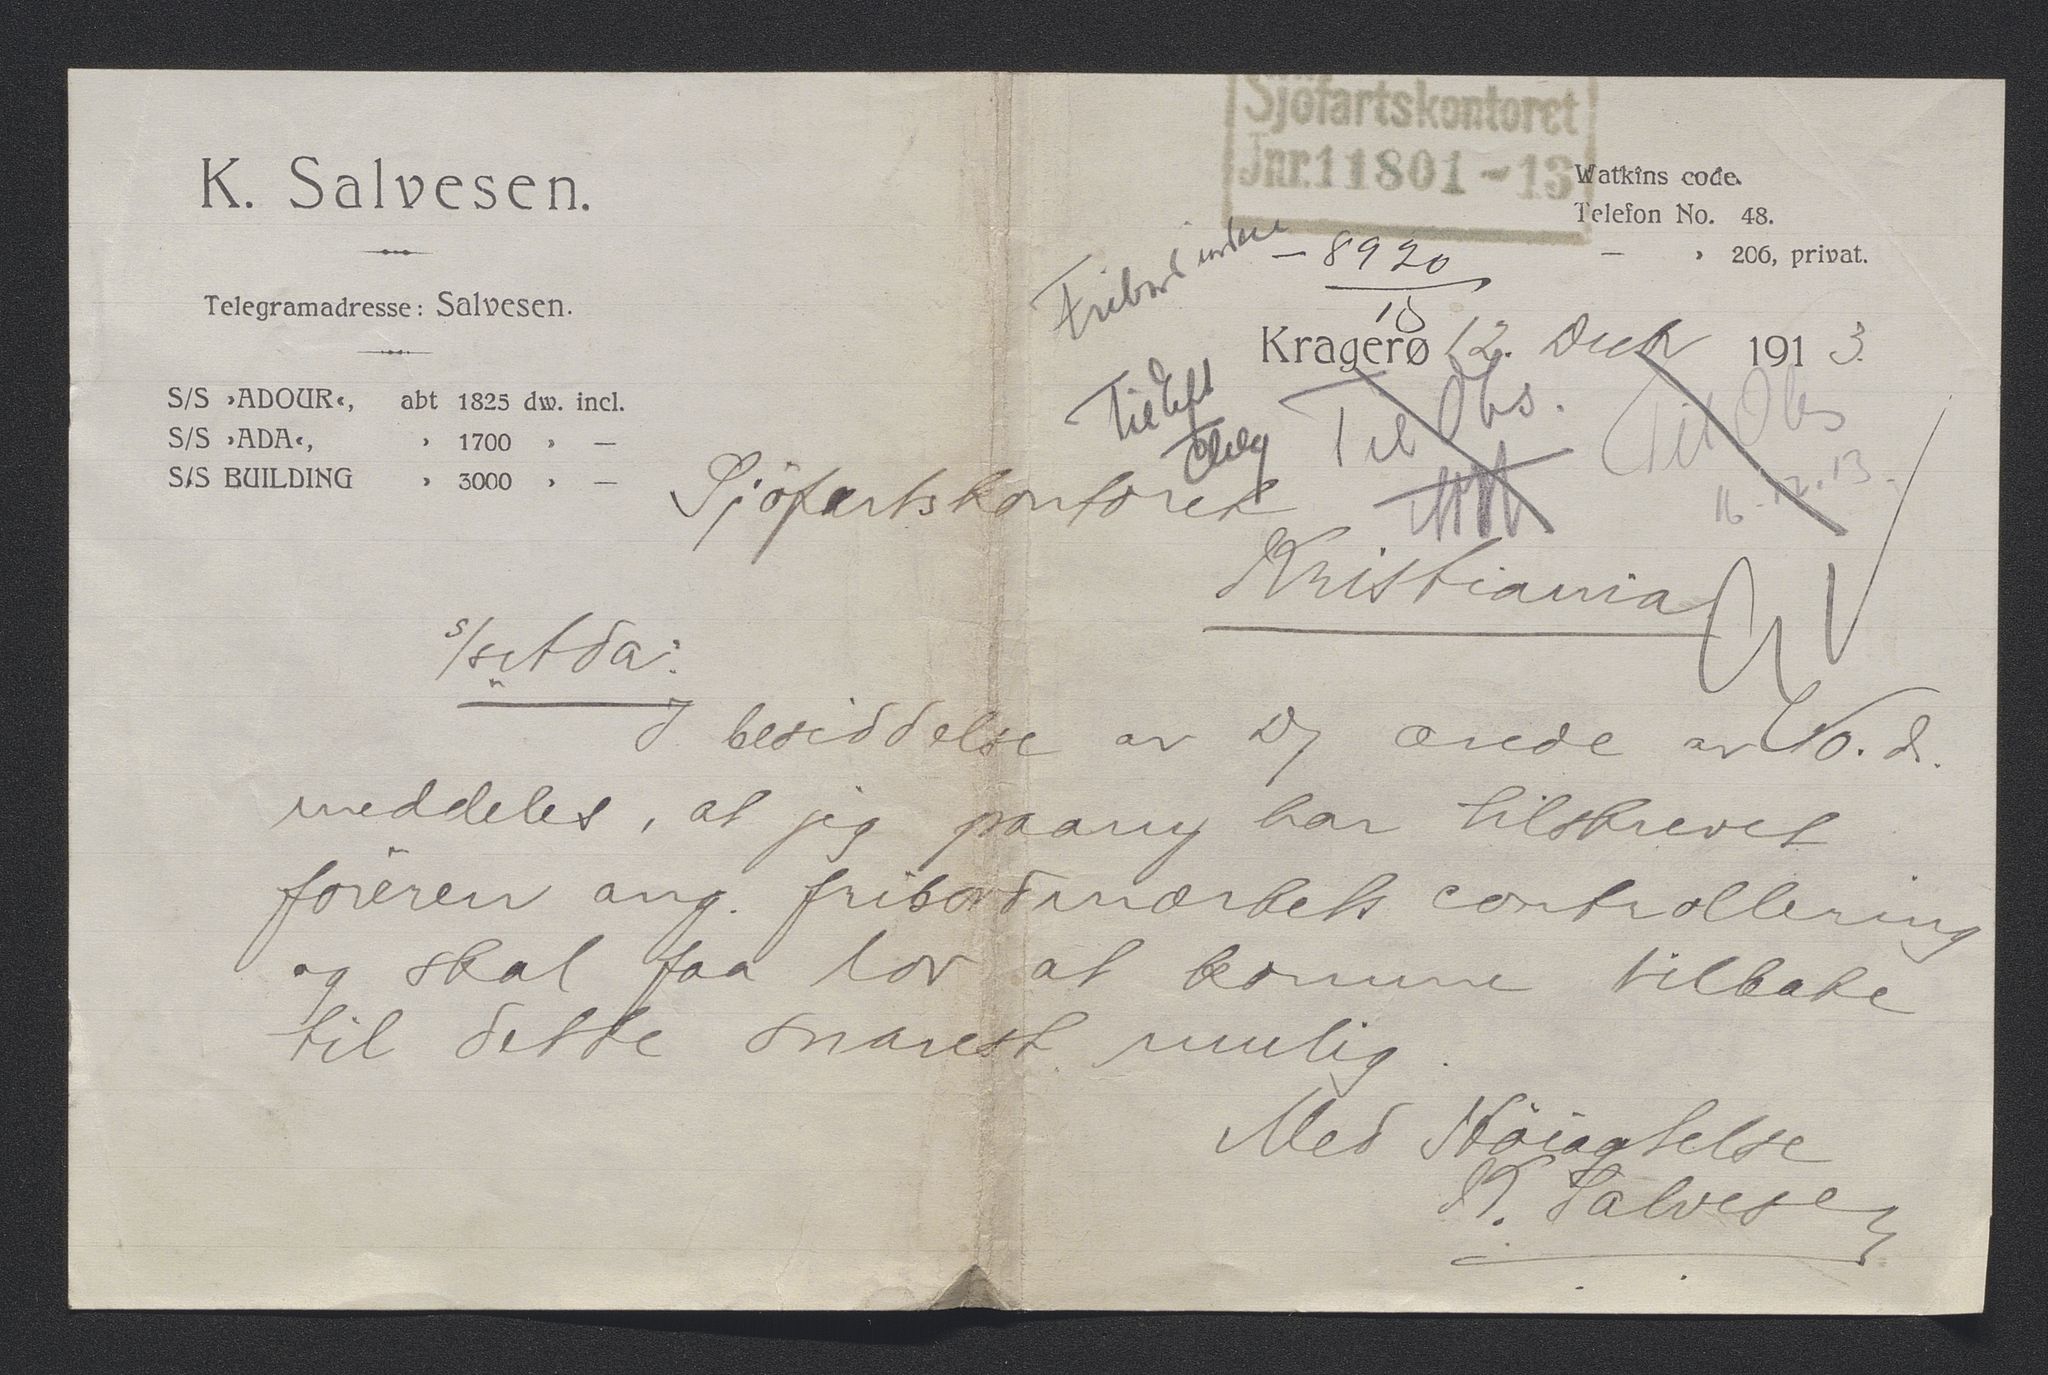 Sjøfartskontoret
Jnr. 11801 - 13
K. Salvesen.
Telegramadresse: Salvesen.
S/S ›ADOUR‹, abt 1825 dw. incl.
S/S ›ADA‹, › 1700 › —
S/S BUILDING › 3000 › —
Watkins code.
Telefon No. 48.
— › 206, privat.
— 8920
13
Kragerø 12. Decbr 1913.
Til Obs.
Til Obs
16-12.13.
Sjöfartskontoret
Kristiania
s/s "Ada":
I besiddelse av Dj ærede av 10. ds.
meddeles, at jeg paany har tilskrevet
föreren ang. fribordmærkets controllering
og skal faa lov at komme tilbake
til dette snarest mulig.
Med Höiagtelse
K. Salvesen